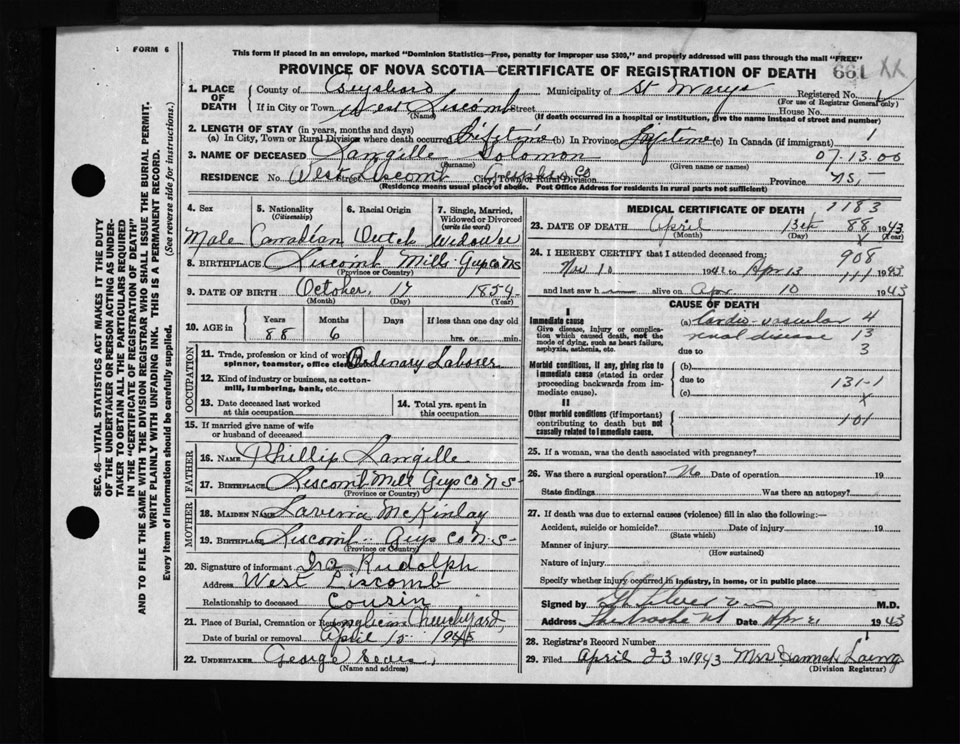 FORM 6
This form if placed in an envelope, marked "Dominion Statistics—Free, penalty for improper use $300," and properly addressed will pass through the mail "FREE"
PROVINCE OF NOVA SCOTIA—CERTIFICATE OF REGISTRATION OF DEATH 661 XX
1. PLACE OF DEATH County of Guysboro Municipality of St Marys Registered No. (For use of Registrar General only)
If in City or Town West Liscomb Street House No.
(Name) (If death occurred in a hospital or institution, give the name instead of street and number)
2. LENGTH OF STAY (in years, months and days)
(a) In City, Town or Rural Division where death occurred Lifetime (b) In Province Lifetime (c) In Canada (if immigrant) 1
3. NAME OF DECEASED Langille Solomon 07.13.00
(Surname) (Given name or names)
RESIDENCE No. West Liscomb Street City, Town or Rural Division Guysboro Co Province N.S.
(Residence means usual place of abode. Post Office Address for residents in rural parts not sufficient)
4. Sex 5. Nationality (Citizenship) 6. Racial Origin 7. Single, Married, Widowed or Divorced (write the word)
Male Canadian Dutch Widower
8. BIRTHPLACE Liscomb Mills Guys Co N S
(Province or Country)
9. DATE OF BIRTH October, 17 1854
(Month) (Day) (Year)
10. AGE in Years Months Days If less than one day old
88 6 hrs. or min.
OCCUPATION
11. Trade, profession or kind of work Ordinary Laborer
spinner, teamster, office clerk
12. Kind of industry or business, as cotton-mill, lumbering, bank, etc.
13. Date deceased last worked at this occupation
14. Total yrs. spent in this occupation
15. If married give name of wife or husband of deceased
FATHER
16. NAME Phillip Langille
17. BIRTHPLACE Liscomb Mill Guys Co N S
(Province or Country)
MOTHER
18. MAIDEN NAME Lavenia McKinlay
19. BIRTHPLACE Liscomb Guys Co N S
(Province or Country)
20. Signature of informant Ira Rudolph
Address West Liscomb
Relationship to deceased Cousin
21. Place of Burial, Cremation or Removal Anglican Churchyard,
Date of burial or removal April 15 1943
22. UNDERTAKER George
(Name and address)
MEDICAL CERTIFICATE OF DEATH 1183
23. DATE OF DEATH April 13th 88 1943
(Month) (Day) (Year)
24. I HEREBY CERTIFY that I attended deceased from: 908
Nov 10 1942 to Apr 13 111 1943
and last saw h alive on Apr 10 1943
CAUSE OF DEATH
I
Immediate cause
Give disease, injury or complication which caused death, not the mode of dying, such as heart failure, asphyxia, asthenia, etc.
(a) Cardio-vascular 4
renal disease 13
due to 3
Morbid conditions, if any, giving rise to immediate cause (stated in order proceeding backwards from immediate cause).
(b)
due to 131-1
(c) X
II
Other morbid conditions (if important) contributing to death but not causally related to immediate cause.
101
25. If a woman, was the death associated with pregnancy?
26. Was there a surgical operation? No Date of operation 19
State findings Was there an autopsy?
27. If death was due to external causes (violence) fill in also the following:—
Accident, suicide or homicide? Date of injury 19
(State which)
Manner of injury
(How sustained)
Nature of injury
Specify whether injury occurred in industry, in home, or in public place
Signed by M.D.
Address Sherbrooke NS Date Apr 21 1943
28. Registrar's Record Number 1
29. Filed April 23 1943 Mrs Hannah Laing
(Division Registrar)
SEC. 46—VITAL STATISTICS ACT MAKES IT THE DUTY
OF THE UNDERTAKER OR PERSON ACTING AS UNDER-
TAKER TO OBTAIN ALL THE PARTICULARS REQUIRED
IN THE "CERTIFICATE OF REGISTRATION OF DEATH"
AND TO FILE THE SAME WITH THE DIVISION REGISTRAR WHO SHALL ISSUE THE BURIAL PERMIT.
WRITE PLAINLY WITH UNFADING INK. THIS IS A PERMANENT RECORD.
Every item of information should be carefully supplied. (See reverse side for instructions.)